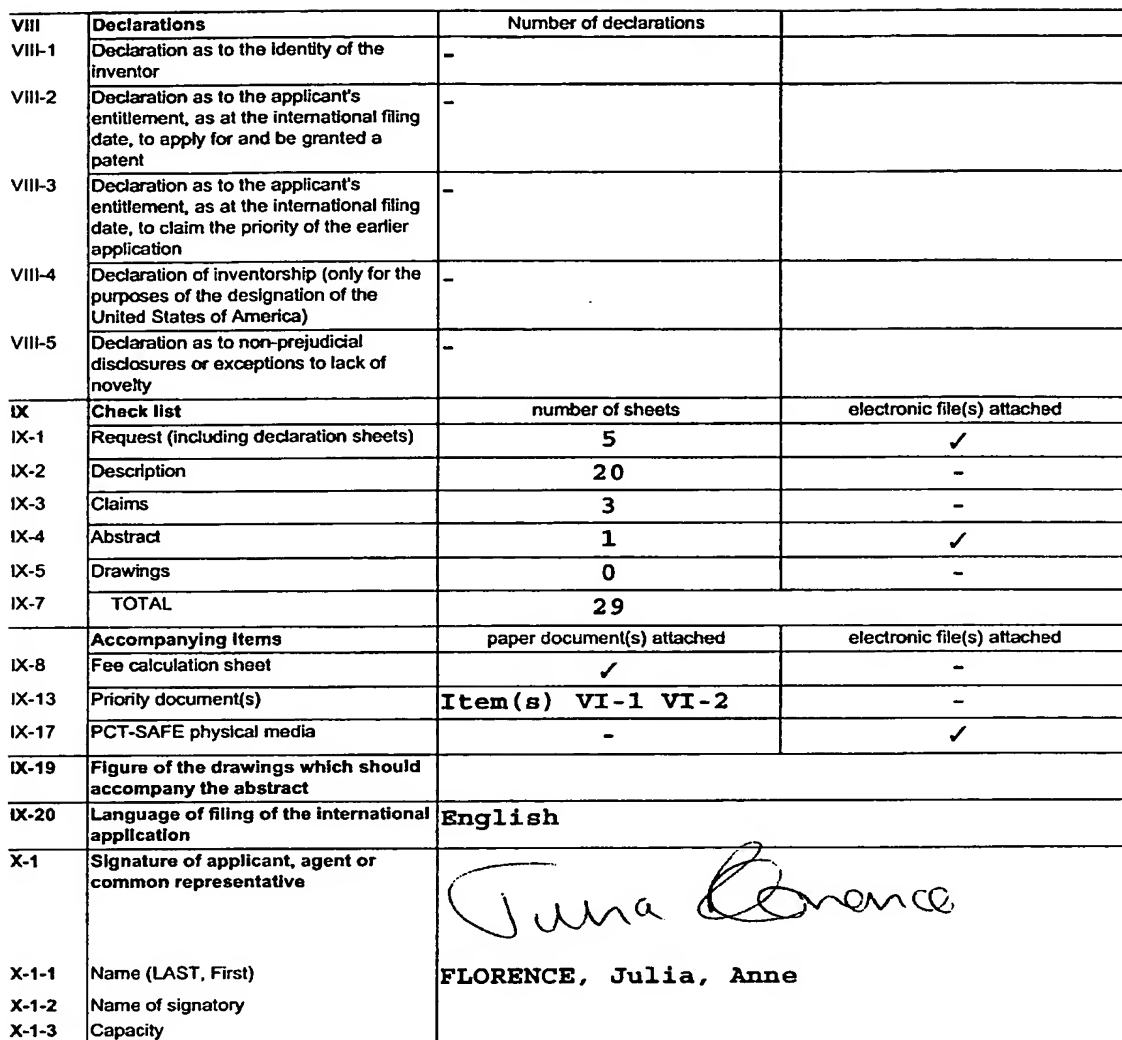 VIII Declarations Number of declarations
VIII-1 Declaration as to the identity of the -
inventor
VIII-2 Declaration as to the applicant's -
entitlement, as at the international filing
date, to apply for and be granted a
patent
VIII-3 Declaration as to the applicant's -
entitlement, as at the international filing
date, to claim the priority of the earlier
application
VIII-4 Declaration of inventorship (only for the -
purposes of the designation of the
United States of America)
VIII-5 Declaration as to non-prejudicial -
disclosures or exceptions to lack of
novelty
IX Check list number of sheets electronic file(s) attached
IX-1 Request (including declaration sheets) 5 ✓
IX-2 Description 20 -
IX-3 Claims 3 -
IX-4 Abstract 1 ✓
IX-5 Drawings 0 -
IX-7 TOTAL 29
Accompanying Items paper document(s) attached electronic file(s) attached
IX-8 Fee calculation sheet ✓ -
IX-13 Priority document(s) Item(s) VI-1 VI-2 -
IX-17 PCT-SAFE physical media - ✓
IX-19 Figure of the drawings which should
accompany the abstract
IX-20 Language of filing of the international English
application
X-1 Signature of applicant, agent or
common representative
Julia Florence
X-1-1 Name (LAST, First) FLORENCE, Julia, Anne
X-1-2 Name of signatory
X-1-3 Capacity